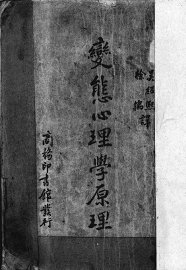 吳紹熙
徐儒 譯
變態心理學原理
商務印書館發行